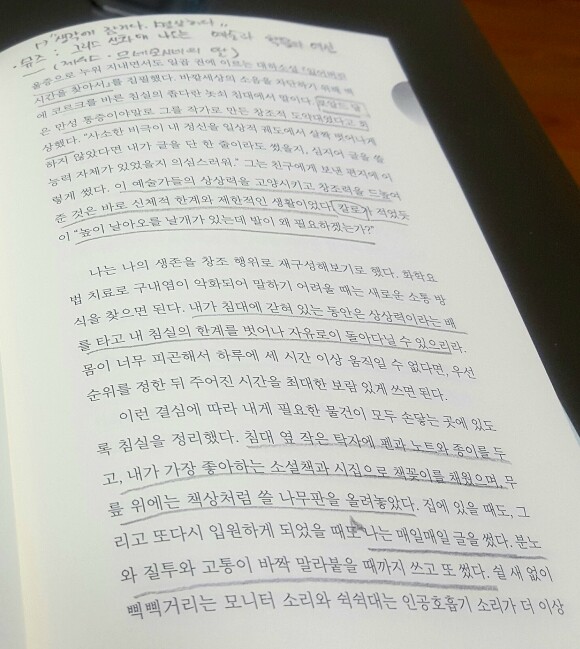 "생각에 잠기다, 명상하다"
뮤즈 : 그리스 신화에 나오는 예술과 학문의 여신
(제우스
통증으로 누워 지내면서도 일곱 권에 이르는 대하소설 『잃어버린
시간을 찾아서』를 집필했다. 바깥세상의 소음을 차단하기 위해 벽
에 코르크를 바른 침실의 좁다란 놋쇠 침대에서 말이다. 로알드 달
은 만성 통증이야말로 그를 작가로 만든 창조적 도약대였다고 회
상했다. "사소한 비극이 내 정신을 일상적 궤도에서 살짝 벗어나게
하지 않았다면 내가 글을 단 한 줄이라도 썼을지, 심지어 글을 쓸
능력 자체가 있었을지 의심스러워." 그는 친구에게 보낸 편지에 이
렇게 썼다. 이 예술가들의 상상력을 고양시키고 창조력을 드높여
준 것은 바로 신체적 한계와 제한적인 생활이었다. 칼로가 적었듯
이 "높이 날아오를 날개가 있는데 발이 왜 필요하겠는가?"
나는 나의 생존을 창조 행위로 재구성해보기로 했다. 화학요
법 치료로 구내염이 악화되어 말하기 어려울 때는 새로운 소통 방
식을 찾으면 된다. 내가 침대에 갇혀 있는 동안은 상상력이라는 배
를 타고 내 침실의 한계를 벗어나 자유로이 돌아다닐 수 있으리라.
몸이 너무 피곤해서 하루에 세 시간 이상 움직일 수 없다면, 우선
순위를 정한 뒤 주어진 시간을 최대한 보람 있게 쓰면 된다.
이런 결심에 따라 내게 필요한 물건이 모두 손닿는 곳에 있도
록 침실을 정리했다. 침대 옆 작은 탁자에 펜과 노트와 종이를 두
고, 내가 가장 좋아하는 소설책과 시집으로 책꽂이를 채웠으며, 무
릎 위에는 책상처럼 쓸 나무판을 올려놓았다. 집에 있을 때도, 그
리고 또다시 입원하게 되었을 때도 나는 매일매일 글을 썼다. 분노
와 질투와 고통이 바짝 말라붙을 때까지 쓰고 또 썼다. 쉴 새 없이
삑삑거리는 모니터 소리와 쉭쉭대는 인공호흡기 소리가 더 이상